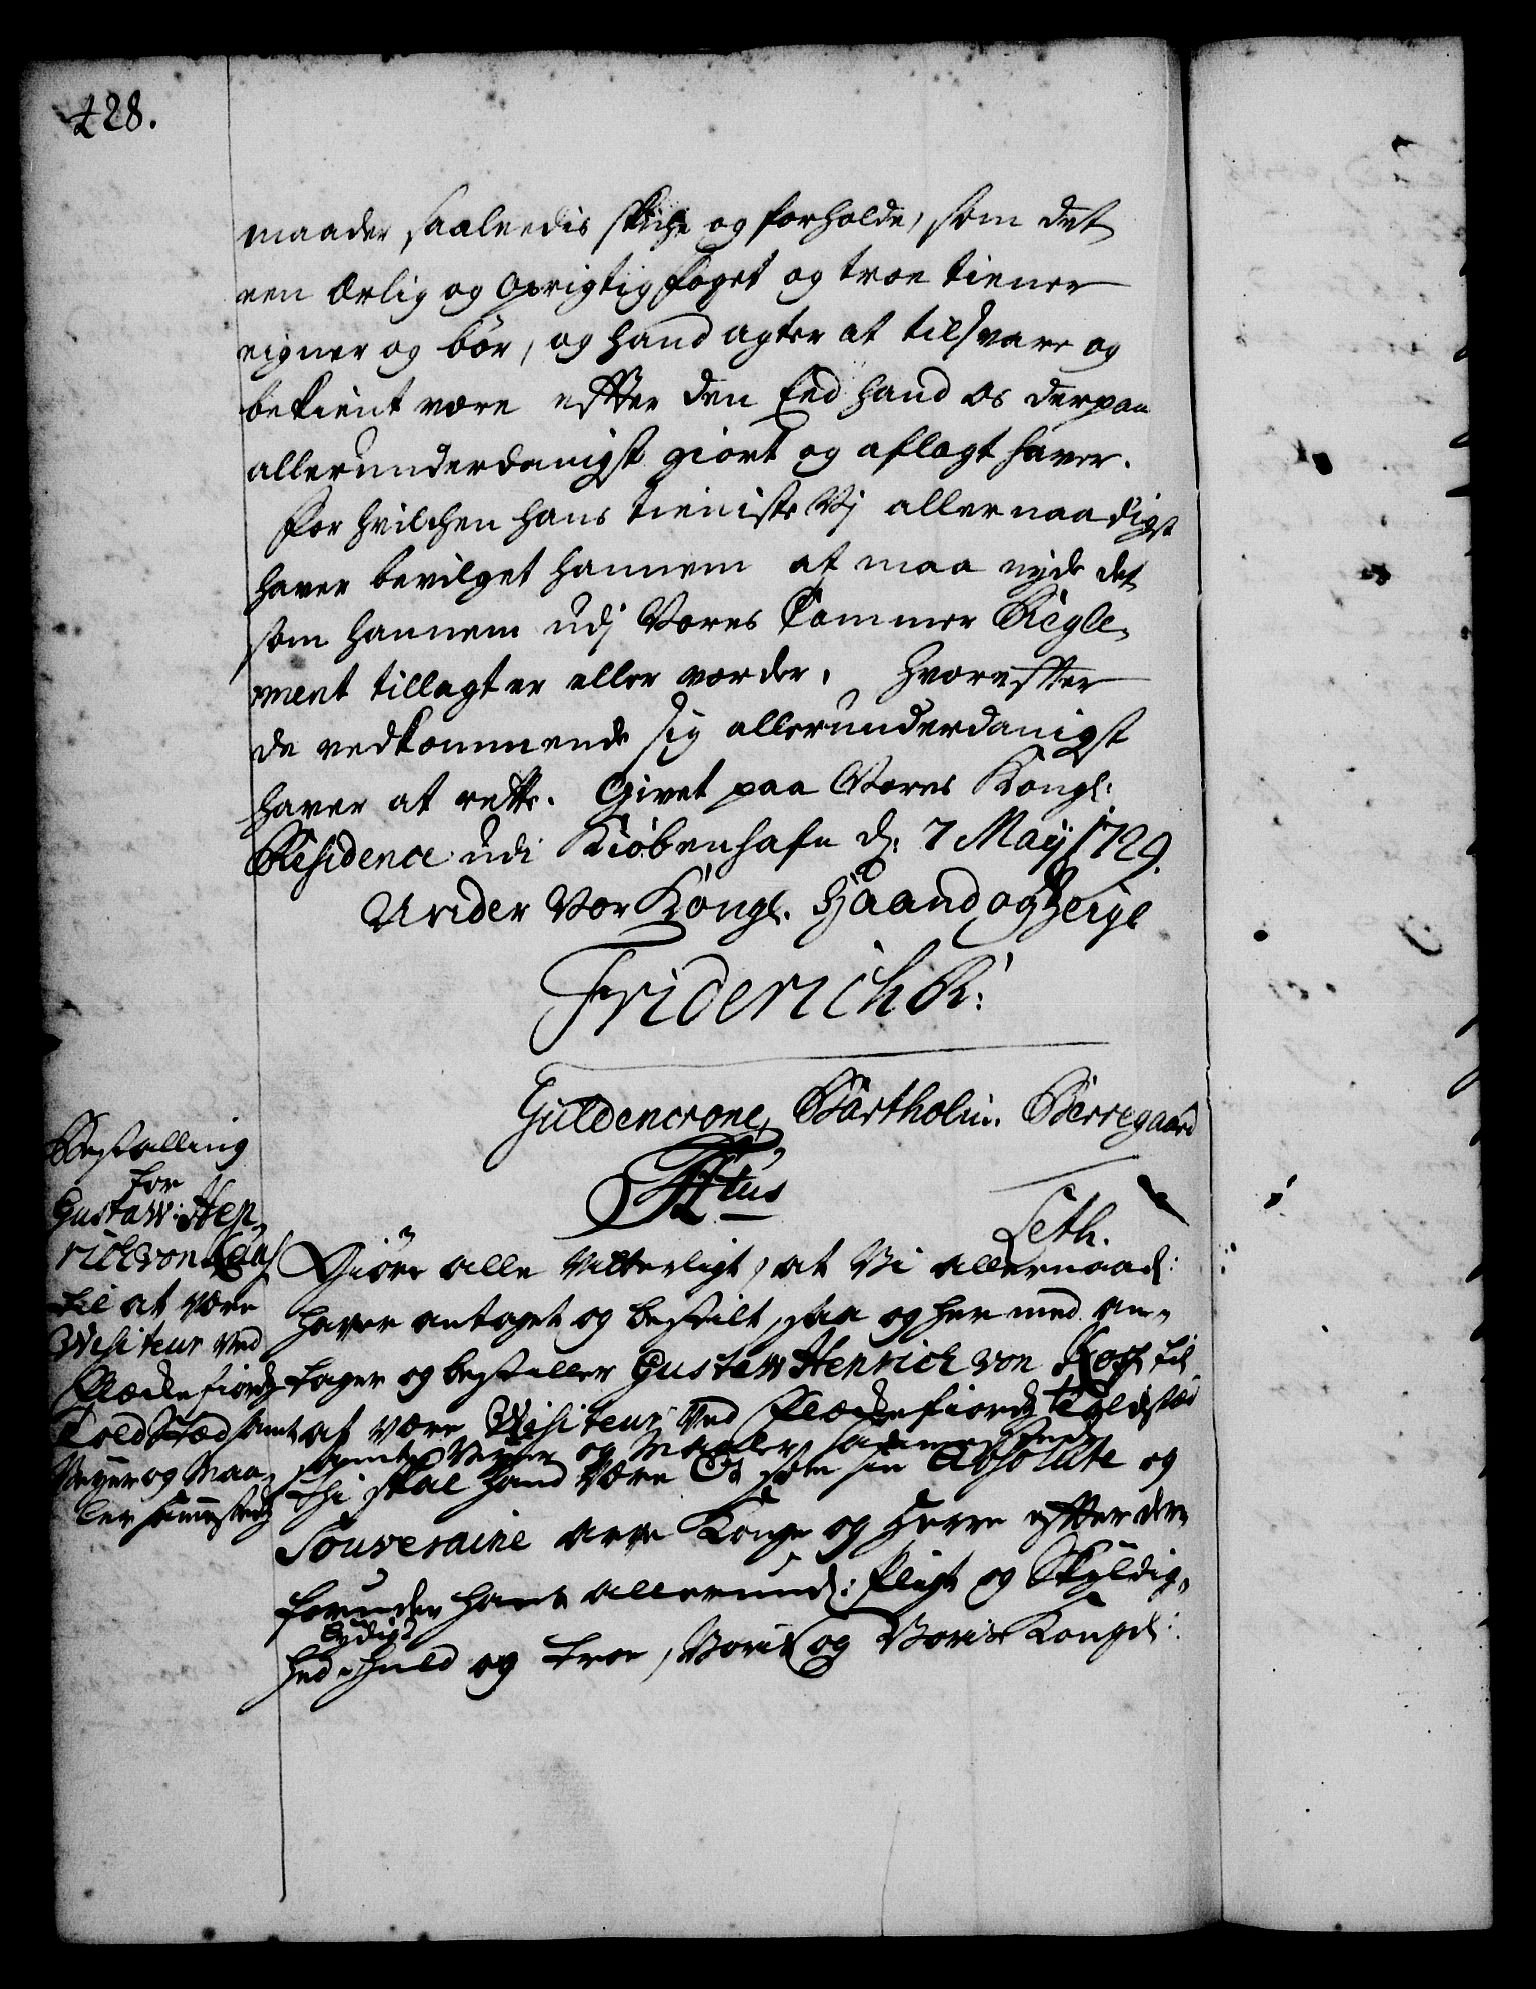 428.
maader saaleedis skiche og forholde, som det
een ærlig og oprigtig foget og troe tiener
eigner og bör, og hand agter at tilsvare og
bekient være effter den Eed hand os derpaa
allerunderdanigst giort og aflagt haver.
for hvilchen hans tieniste Vj allernaadigst
haver bevilget hannem at maa nyde det
som hannem udj Vores Cammer Regle,
ment tillagt er eller vorder. Hvoreffter
de vedkommende sig allerunderdanigst
haver at rette. Givet paa Vores Kongl:
Residence udi Kiöbenhafn d: 7 Maij 1729.
Under Vor Kongl. Haand og Zeigl
Friderich R:
Güldencrone, Bartholin. Berregaard
Titus
Leth.
Bestalling
for
Gustaw: Hen,
rich von
til at være
Visiteur ved
Flæckefiords
Toldsted samt
Veyer og Maa,
ler sammesteds
Giöre alle Vitterligt, at Vi allernaad:
haver antaget og bestilt, saa og her med an,
tager og bestiller Gustaw Henrich von Koss til
at være Visiteur ved Flæckefiords Toldsted
samt Veyer og Maaler sammesteds
Thi skal hand være Os som sin Absolute og
Souveraine arve Konge og Herre effter den
forunden hans allerund: Pligt og Skyldig,
lydigt
hed, huld og troe, Voris og Voris Kongl: